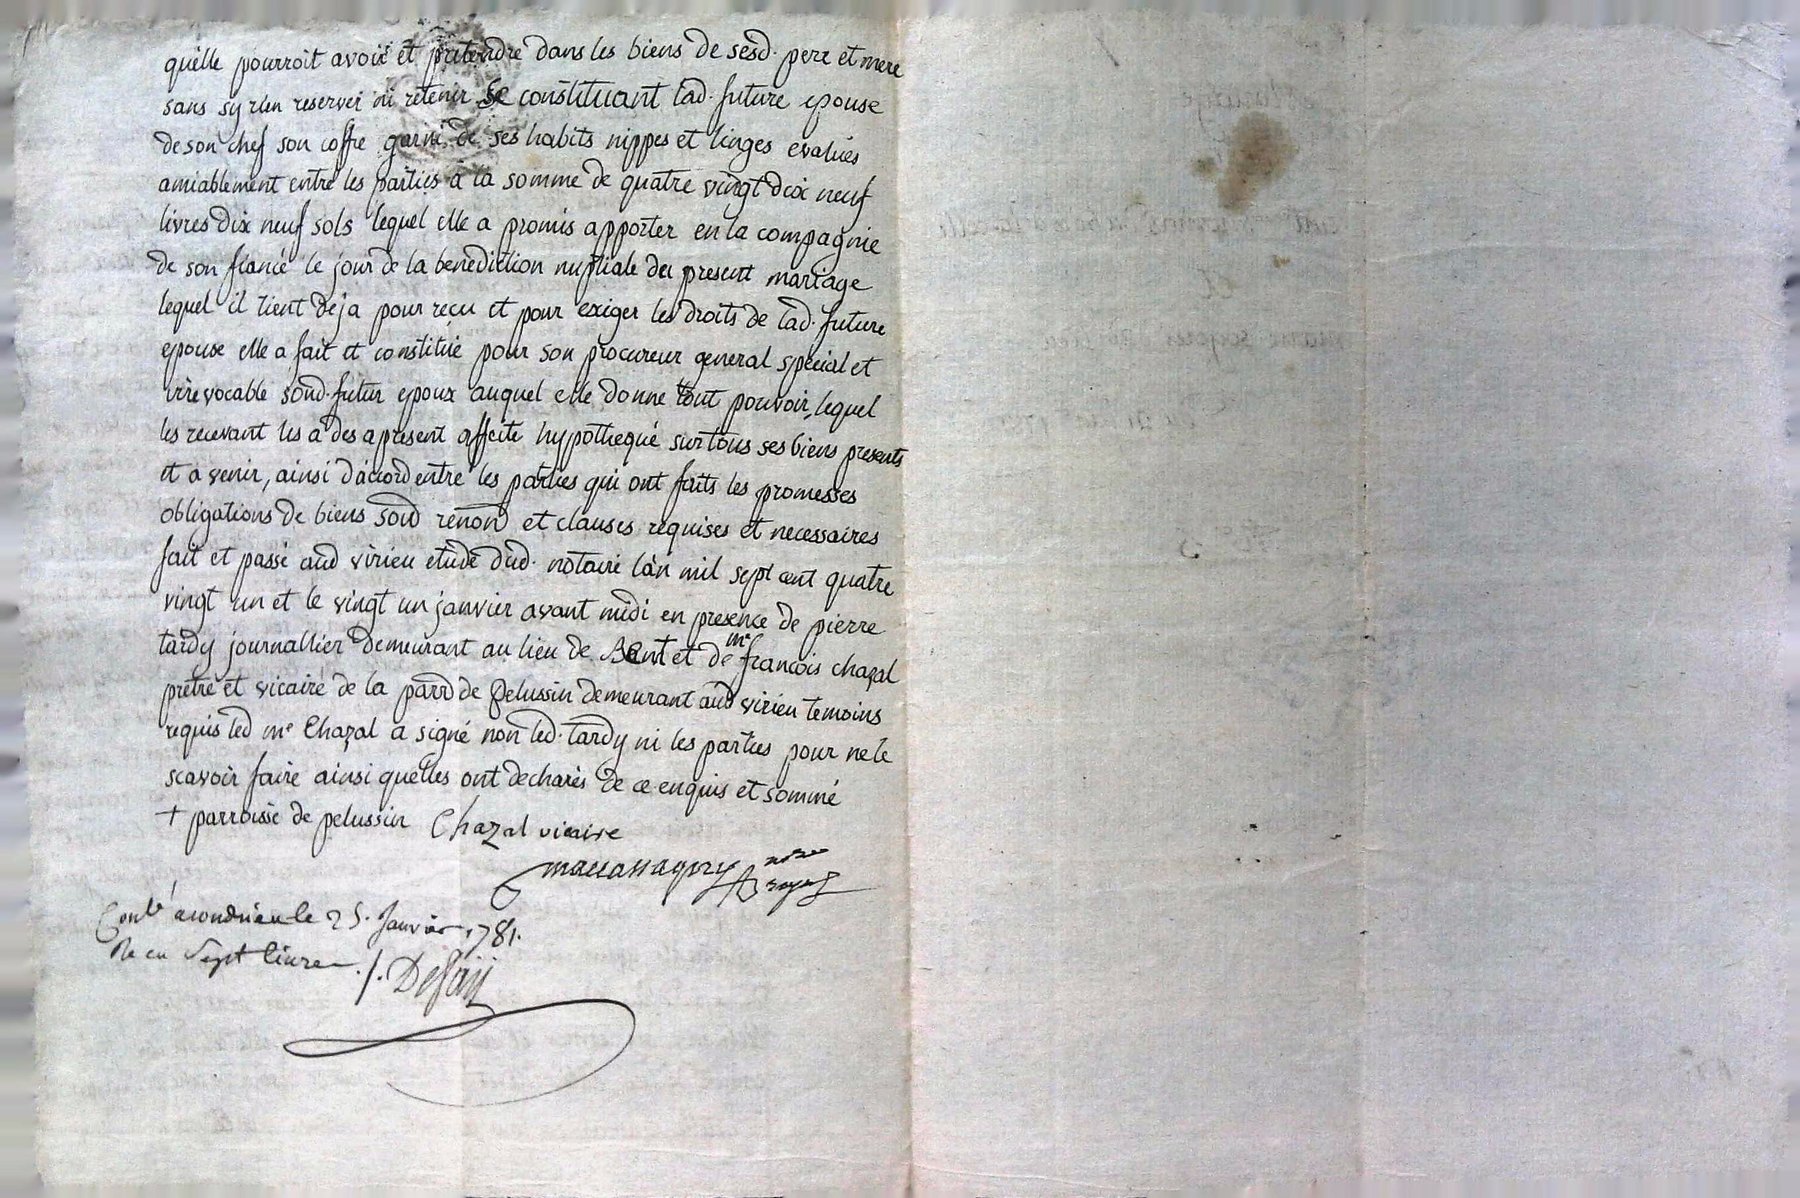 quelle pourroit avoir et pretendre dans les biens de sesd. pere et mere
sans sy rien reserver ni retenir se constituant lad. future epouse
de son chef son coffre garni de ses habits nippes et linges evalués
amiablement entre les parties a la somme de quatre vingt dix neuf
livres dix neuf sols lequel elle a promis apporter en la compagnie
de son fiancé le jour de la benediction nuptiale du present mariage
lequel il tient deja pour reçu et pour exiger les droits de lad. future
epouse elle a fait et constitué pour son procureur general special et
irrevocable sond. futur epoux auquel elle donne tout pouvoir, lequel
les recevant les a des apresent affecté hypothequé sur tous ses biens presents
et a venir, ainsi daccord entre les parties qui ont faits les promesses
obligations de biens soud renond et clauses requises et necessaires
fait et passé aud virieu etude dud. notaire lan mil sept cent quatre
vingt un et le vingt un janvier avant midi en presence de pierre
tardy journallier demeurant au lieu de et de me francois chazal
pretre et vicaire de la parr de pelussin demeurant aud virieu temoins
requis led me Chazal a signé non led. tardy ni les parties pour ne le
scavoir faire ainsi quelles ont declarés de ce enquis et sommé
+ parroisse de pelussin Chazal vicaire
nore
royal
Conlé acondrieu le 25. Janvier 1781.
Recu Sept livres